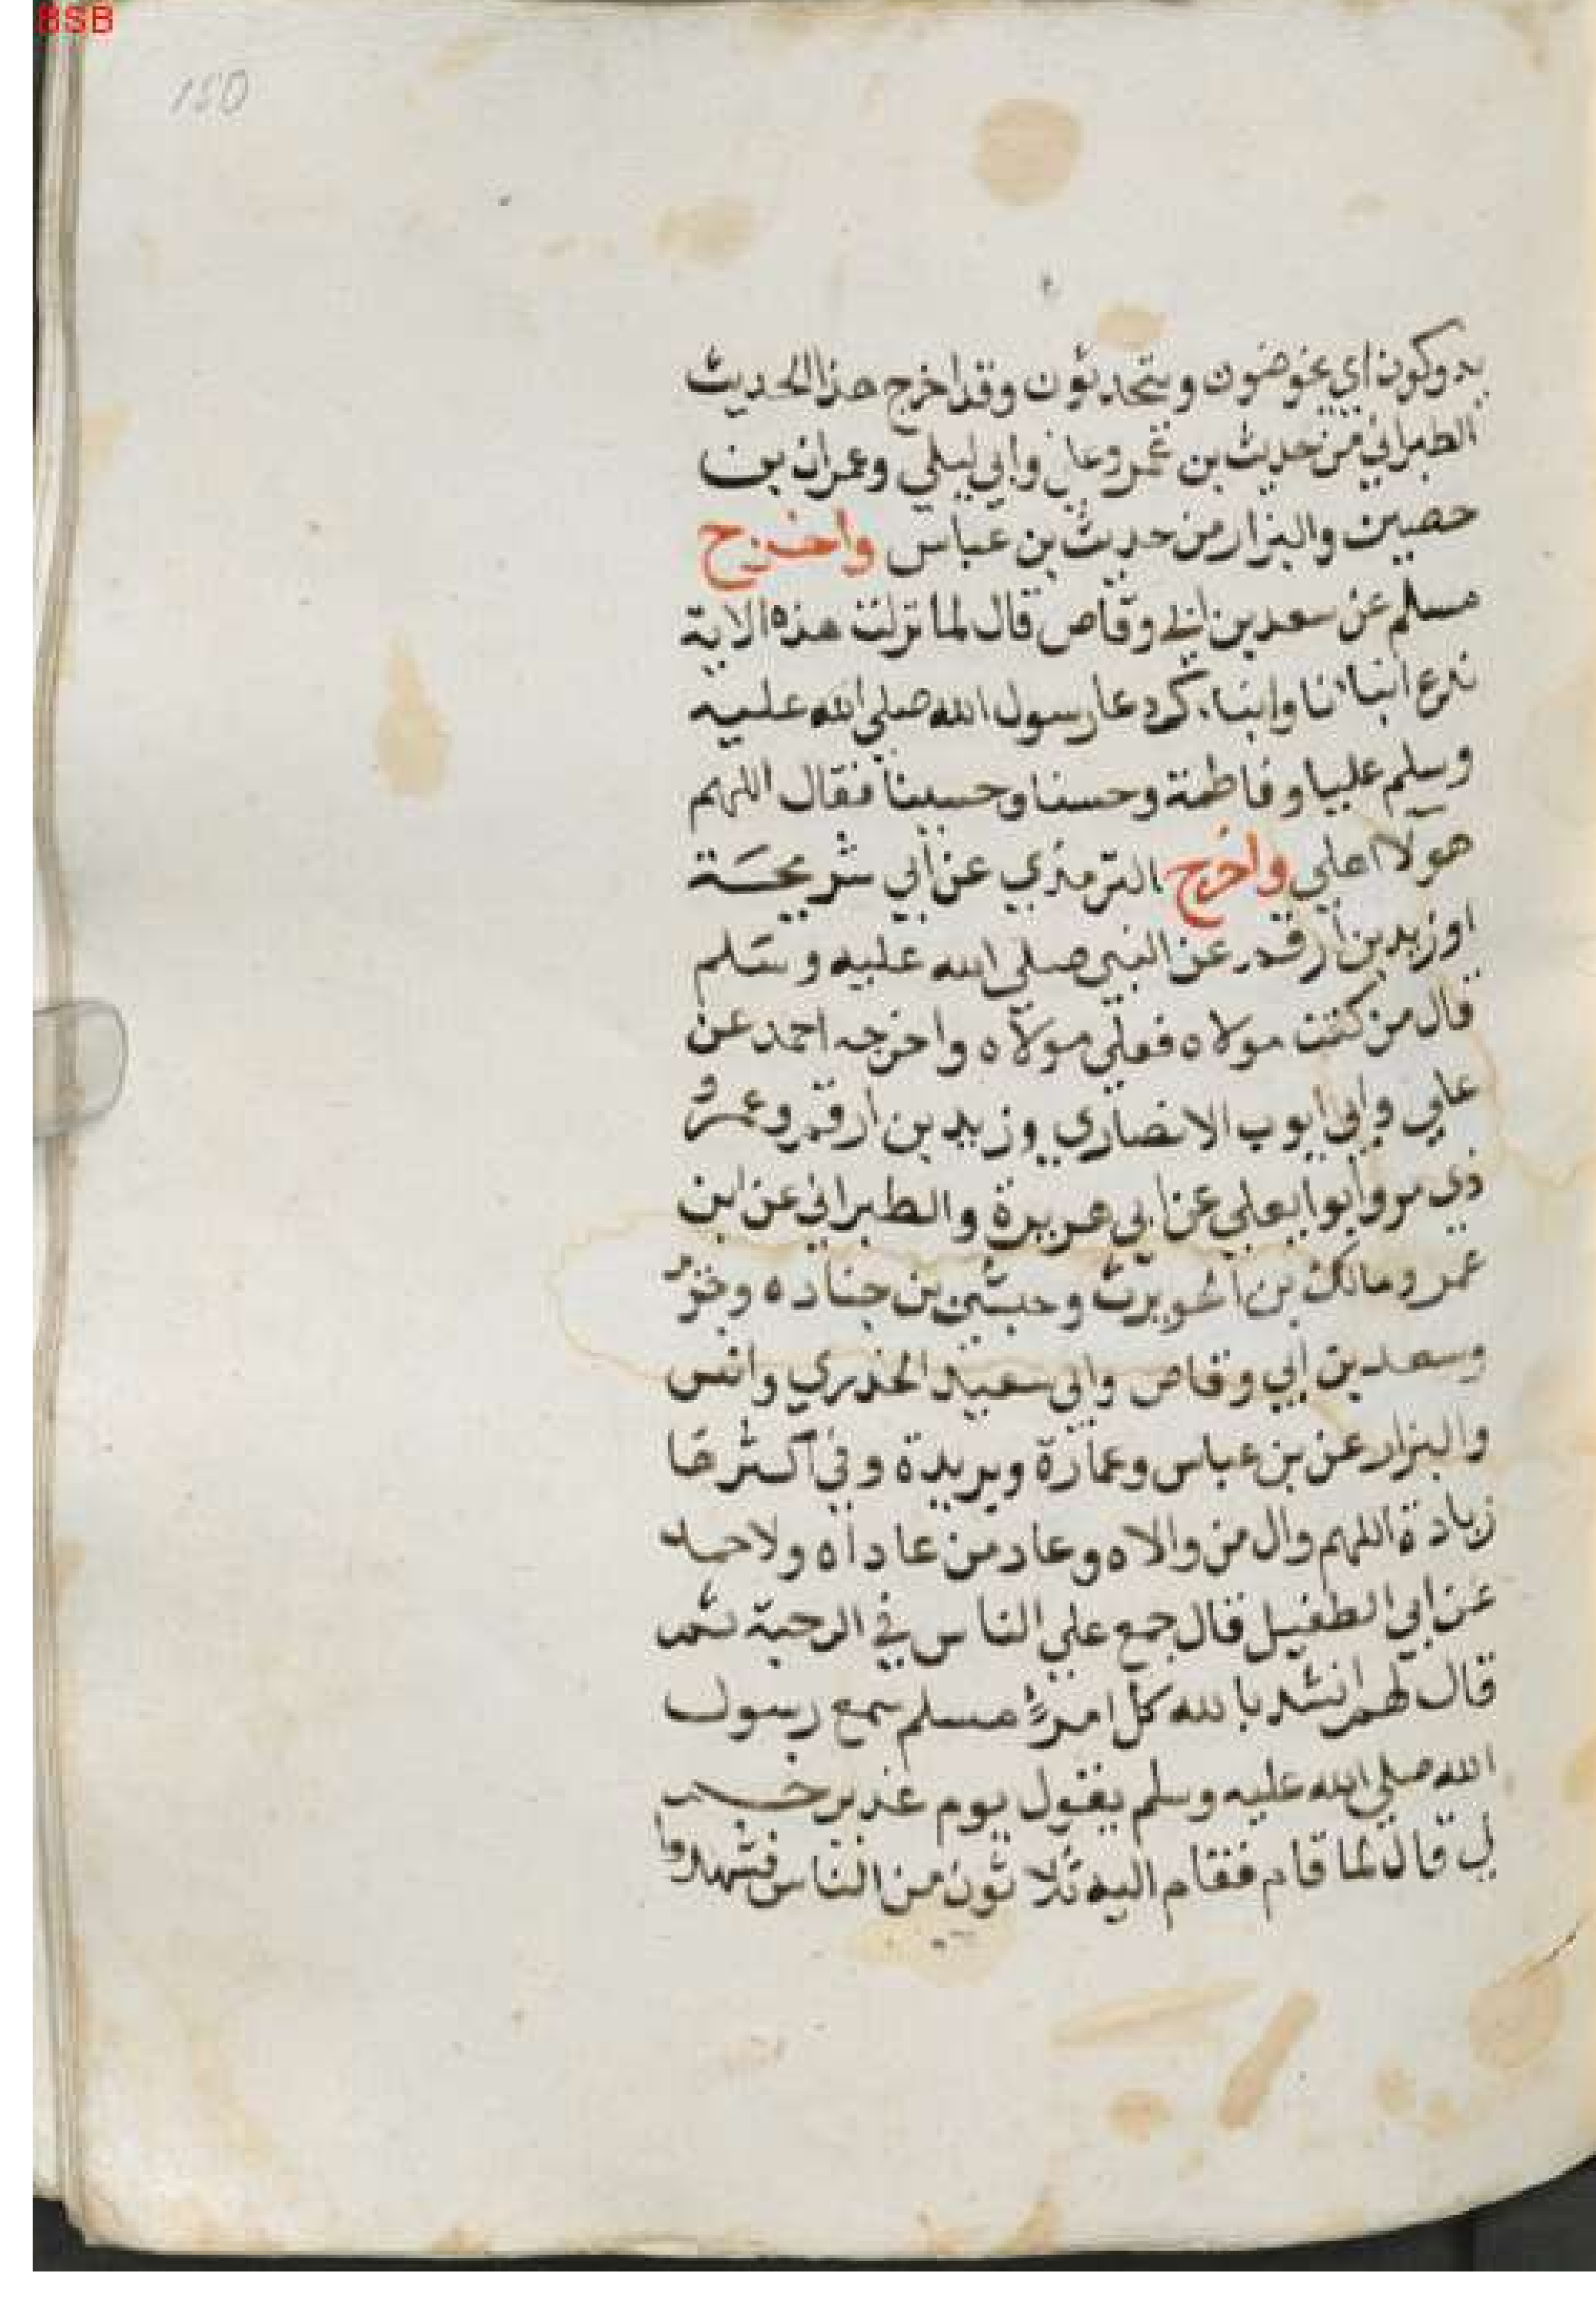 BSB
150
يدوكون اي يخوضون ويتحدثون وقد اخرج هذا الحديث
الطبراني من حديث بن عمر وعلي وابي ليلي وعمران بن
حصين والبزار من حديث بن عباس واخرج
مسلم عن سعد بن ابي وقاص قال لما نزلت هذه الاية
ندع ابناانا وابناءكم دعا رسول الله صلي الله عليه
وسلم عليا وفاطمة وحسنا وحسينا فقال اللهم
هولا اهلي واخرج الترمذي عن ابي شريحة
او زيد بن ارقم عن النبي صلي الله عليه وسلم
قال من كنت مولاه فعلي مولاه واخرجه احمد عن
علي وابي ايوب الانصاري وزيد بن ارقم وعمرو
ذي مر وابوا يعلي عن ابي هريرة والطبراني عن ابن
عمر ومالك بن الحويرث وحبشي بن جناده
وسعد بن ابي وقاص وابي سعيد الخدري وانس
والبزار عن بن عباس وعمارة وبريدة وفي اكثرها
زيادة اللهم وال من والاه وعاد من عاداه ولاحمد
عن ابي الطفيل قال جمع علي الناس في الرحبة ثم
قال لهم انشد بالله كل امرئ مسلم سمع رسول
الله صلي الله عليه وسلم يقول يوم غدير خم
لي قال لما قام فقام اليه ثلاثون من الناس فشهدوا